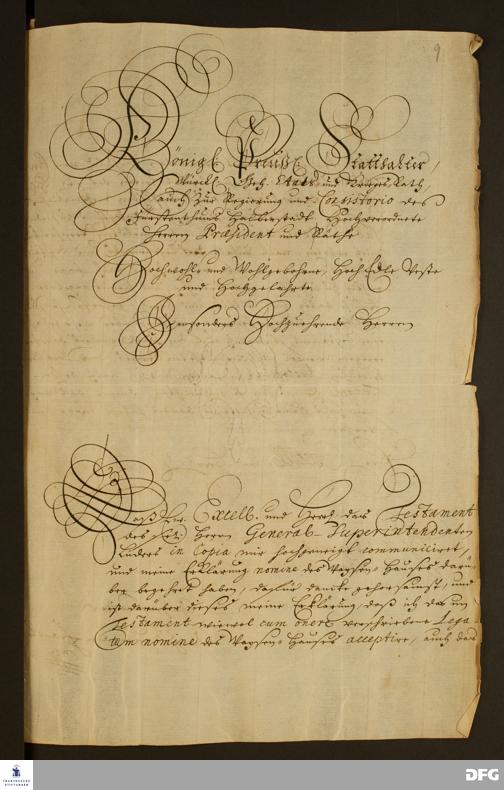 9
Königl. Preuß. Statthalter,
Würckl. Geh. Etats und Krieges Rath,
auch Zur Regierung und Consistorio des
Fürstenthums Halberstadt Hochverordnete
Herren Præsident und Räthe
Hochwohl- und Wohlgebohrne, Hoch Edle Veste
und Hochgelahrte
Besonders Hochzuehrende Herren
Daß Ew. Excell. und Herrl. das Testament
des Herrn General-Superintendenten
Lüders in Copia mir hochgeneigt communiciret,
und meine Erklärung nomine des Waysen-Hauses darü-
ber begehret haben, dafür dancke gehorsamst, und
ist darüber dieses meine Erklärung, daß ich das im
Testament wiewol cum onere verschriebene Lega-
tum nomine des Waysen-Hauses acceptire, auch das
FRANCKESCHE
STIFTUNGEN
DFG